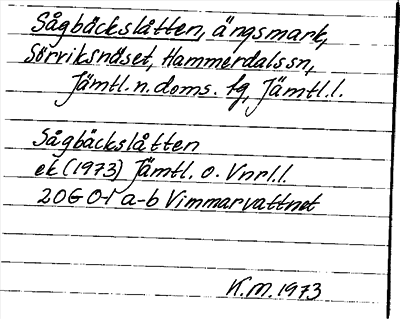 Sågbäckslåtten, ängsmark,
Sörviksnäset, Hammerdals sn,
Jämtl. n. doms. fg, Jämtl. l.
Sågbäckslåtten
ek (1973) Jämtl. o. Vnrl. l.
20G 0-1 a-b Vimmarvattnet
K.M. 1973